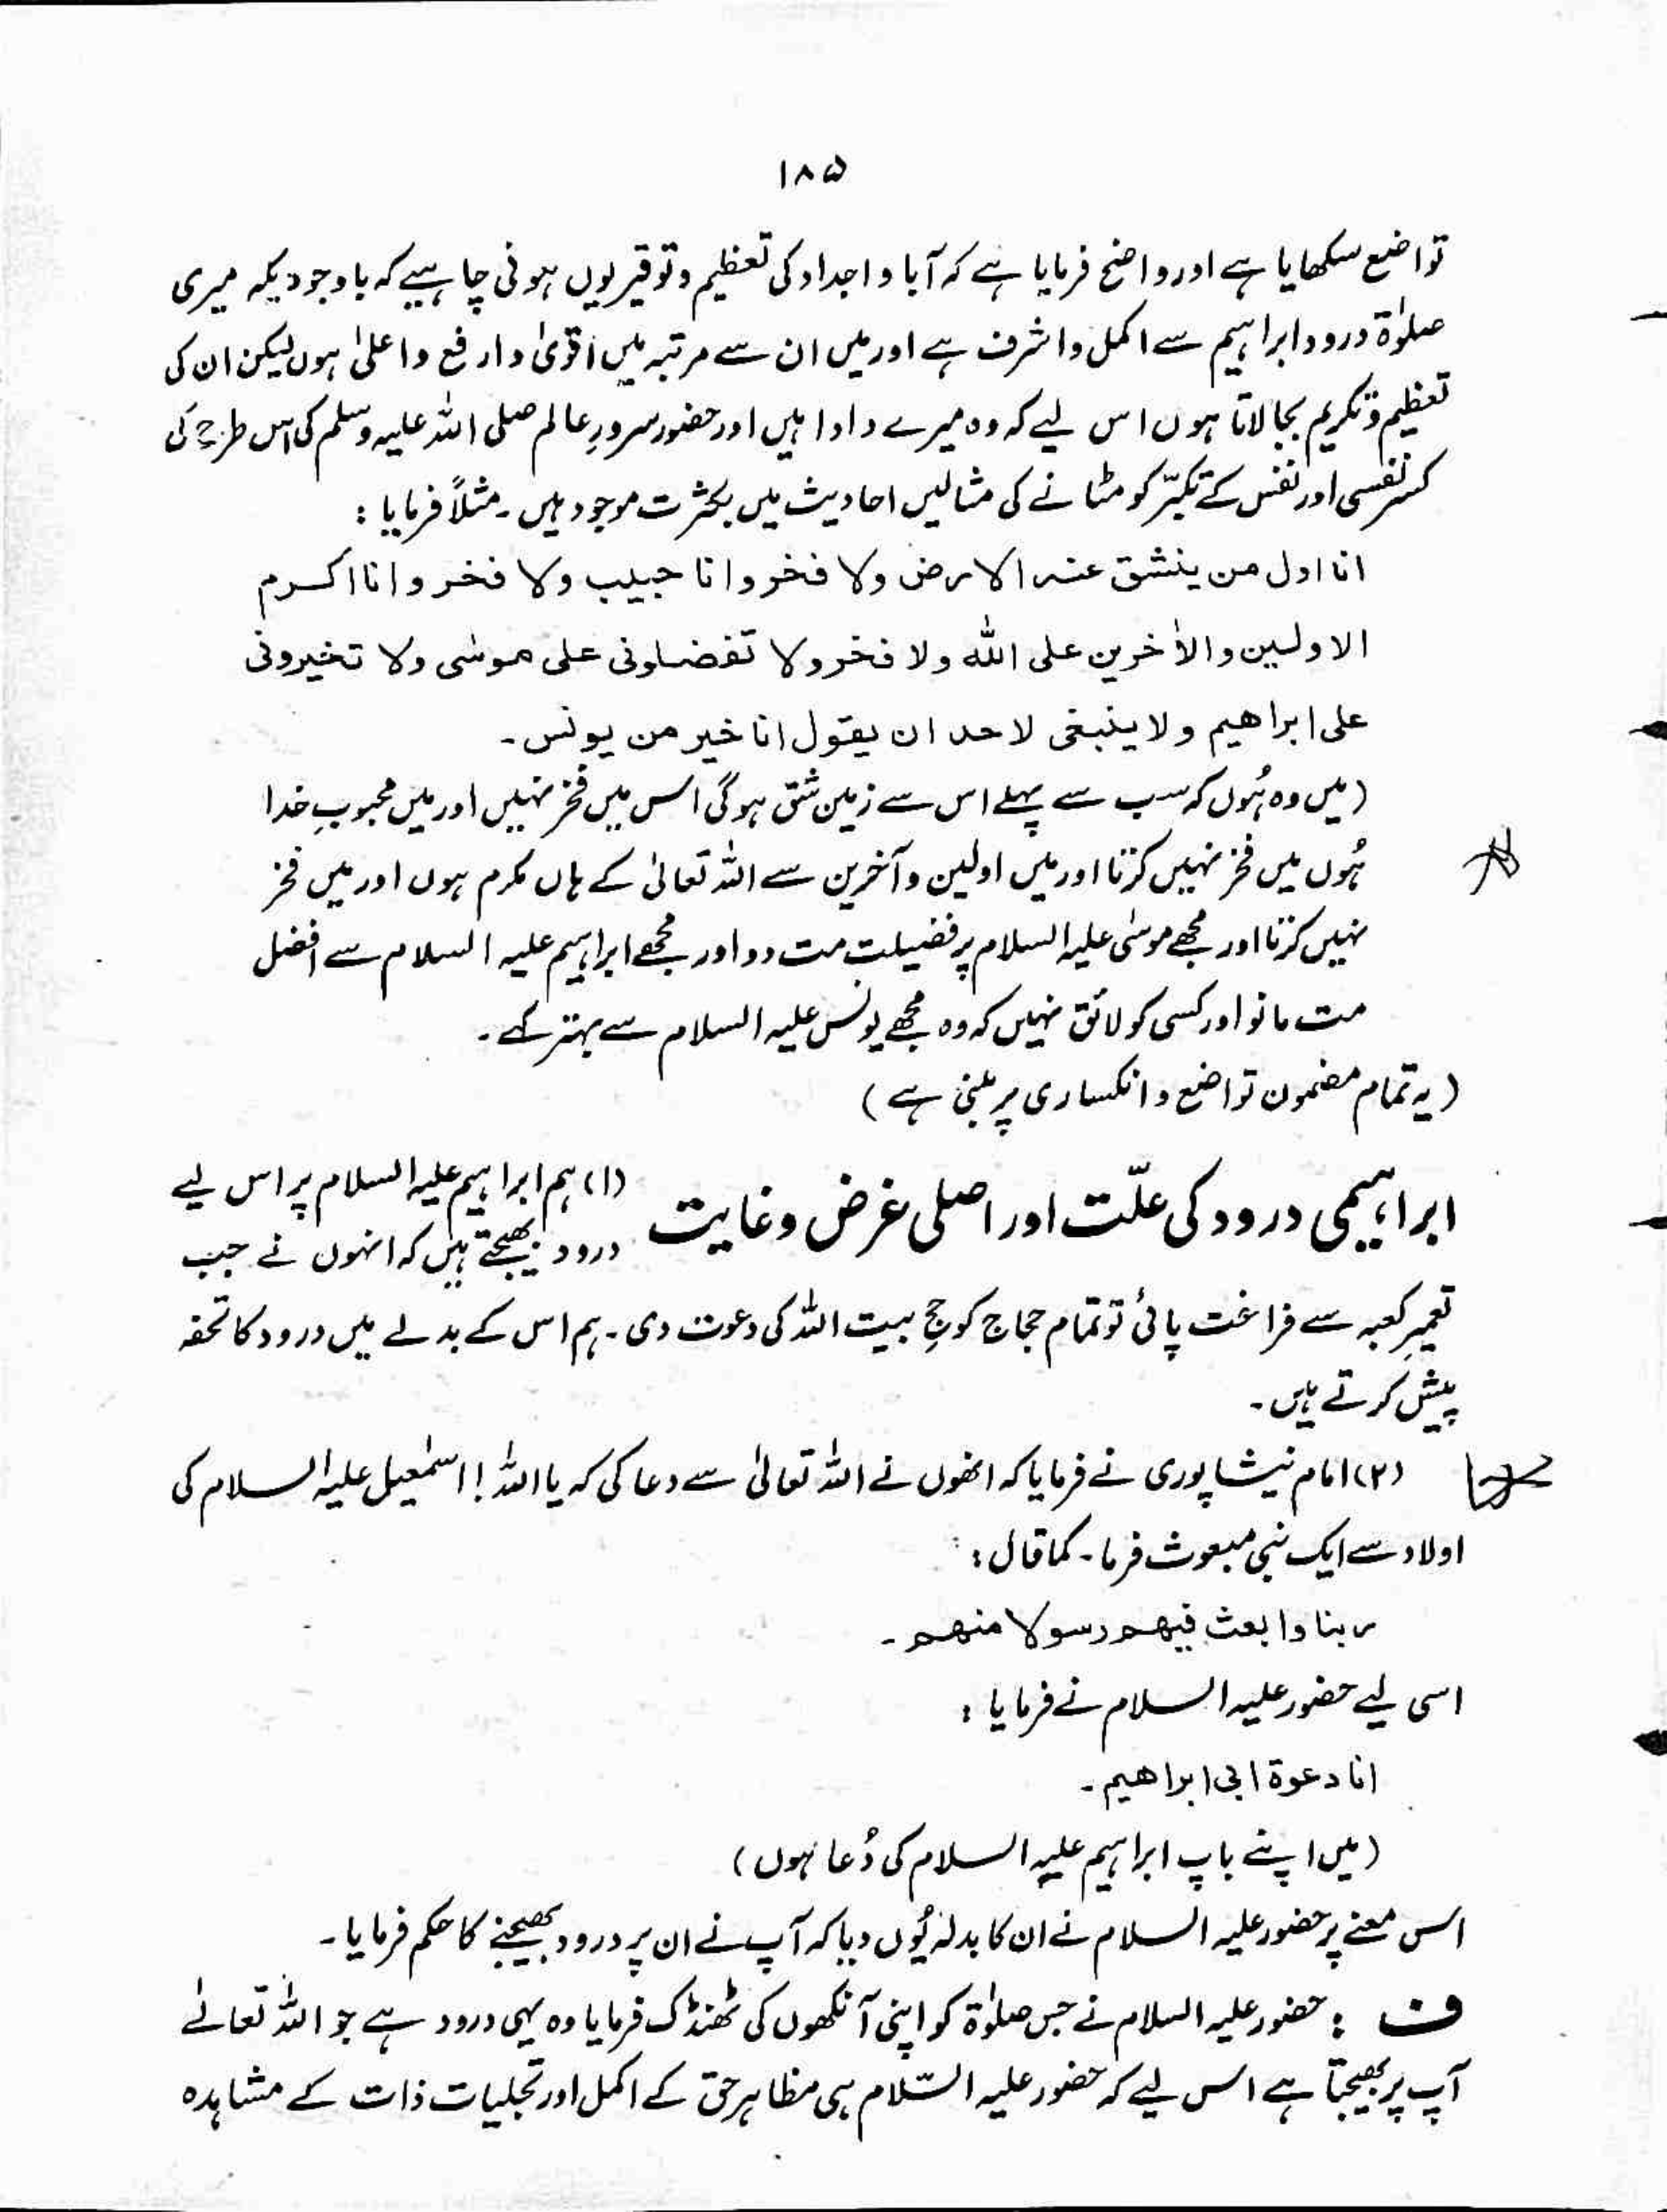 ۱۸۵
تواضع سکھایا ہے اور واضح فرمایا ہے کہ آبا و اجداد کی تعظیم و توقیر یوں ہونی چاہیے کہ باوجودیکہ میری
صلوٰۃ درود ابراہیم سے اکمل و اشرف ہے اور میں ان سے مرتبہ میں اقویٰ و ارفع و اعلیٰ ہوں لیکن ان کی
تعظیم و تکریم بجا لاتا ہوں اس لیے کہ وہ میرے دادا ہیں اور حضور سرورِ عالم صلی اللہ علیہ وسلم کی اس طرح کی
کسرِ نفسی اور نفس کے تکبّر کو مٹانے کی مثالیں احادیث میں بکثرت موجود ہیں ۔ مثلاً فرمایا :
انا اول من ینشق عنہ الارض ولا فخر وانا حبیب ولا فخر وانا اکرم
الاولین والاٰخرین علی اللہ ولا فخر ولا تفضلونی علی موسٰی ولا تخیرونی
علی ابراھیم ولا ینبغی لاحد ان یقول انا خیر من یونس ۔
(میں وہ ہُوں کہ سب سے پہلے اس سے زمین شق ہوگی اس میں فخر نہیں اور میں محبوبِ خدا
ہُوں میں فخر نہیں کرتا اور میں اولین و آخرین سے اللہ تعالیٰ کے ہاں مکرم ہوں اور میں فخر
نہیں کرتا اور مجھے موسٰی علیہ السلام پر فضیلت مت دو اور مجھے ابراہیم علیہ السلام سے افضل
مت مانو اور کسی کو لائق نہیں کہ وہ مجھے یونس علیہ السلام سے بہتر کہے ۔
(یہ تمام مضمون تواضع و انکساری پر مبنی ہے)
ابراہیمی درود کی علّت اور اصلی غرض و غایت (۱) ہم ابراہیم علیہ السلام پر اس لیے
درود بھیجتے ہیں کہ انہوں نے جب
تعمیرِ کعبہ سے فراغت پائی تو تمام حجاج کو حجِ بیت اللہ کی دعوت دی ۔ ہم اس کے بدلے میں درود کا تحفہ
پیش کرتے ہیں ۔
(۲) امام نیشاپوری نے فرمایا کہ انھوں نے اللہ تعالیٰ سے دعا کی کہ یا اللہ ! اسمٰعیل علیہ السلام کی
اولاد سے ایک نبی مبعوث فرما ۔ کما قال :
ربنا وابعث فیھم رسولا منھم ۔
اسی لیے حضور علیہ السلام نے فرمایا :
انا دعوۃ ابی ابراھیم ۔
(میں اپنے باپ ابراہیم علیہ السلام کی دُعا ہوں)
اس معنے پر حضور علیہ السلام نے ان کا بدلہ یُوں دیا کہ آپ نے ان پر درود بھیجنے کا حکم فرمایا ۔
ف : حضور علیہ السلام نے جس صلوٰۃ کو اپنی آنکھوں کی ٹھنڈک فرمایا وہ یہی درود ہے جو اللہ تعالےٰ
آپ پر بھیجتا ہے اس لیے کہ حضور علیہ السّلام ہی مظاہرِ حق کے اکمل اور تجلیات ذات کے مشاہدہ